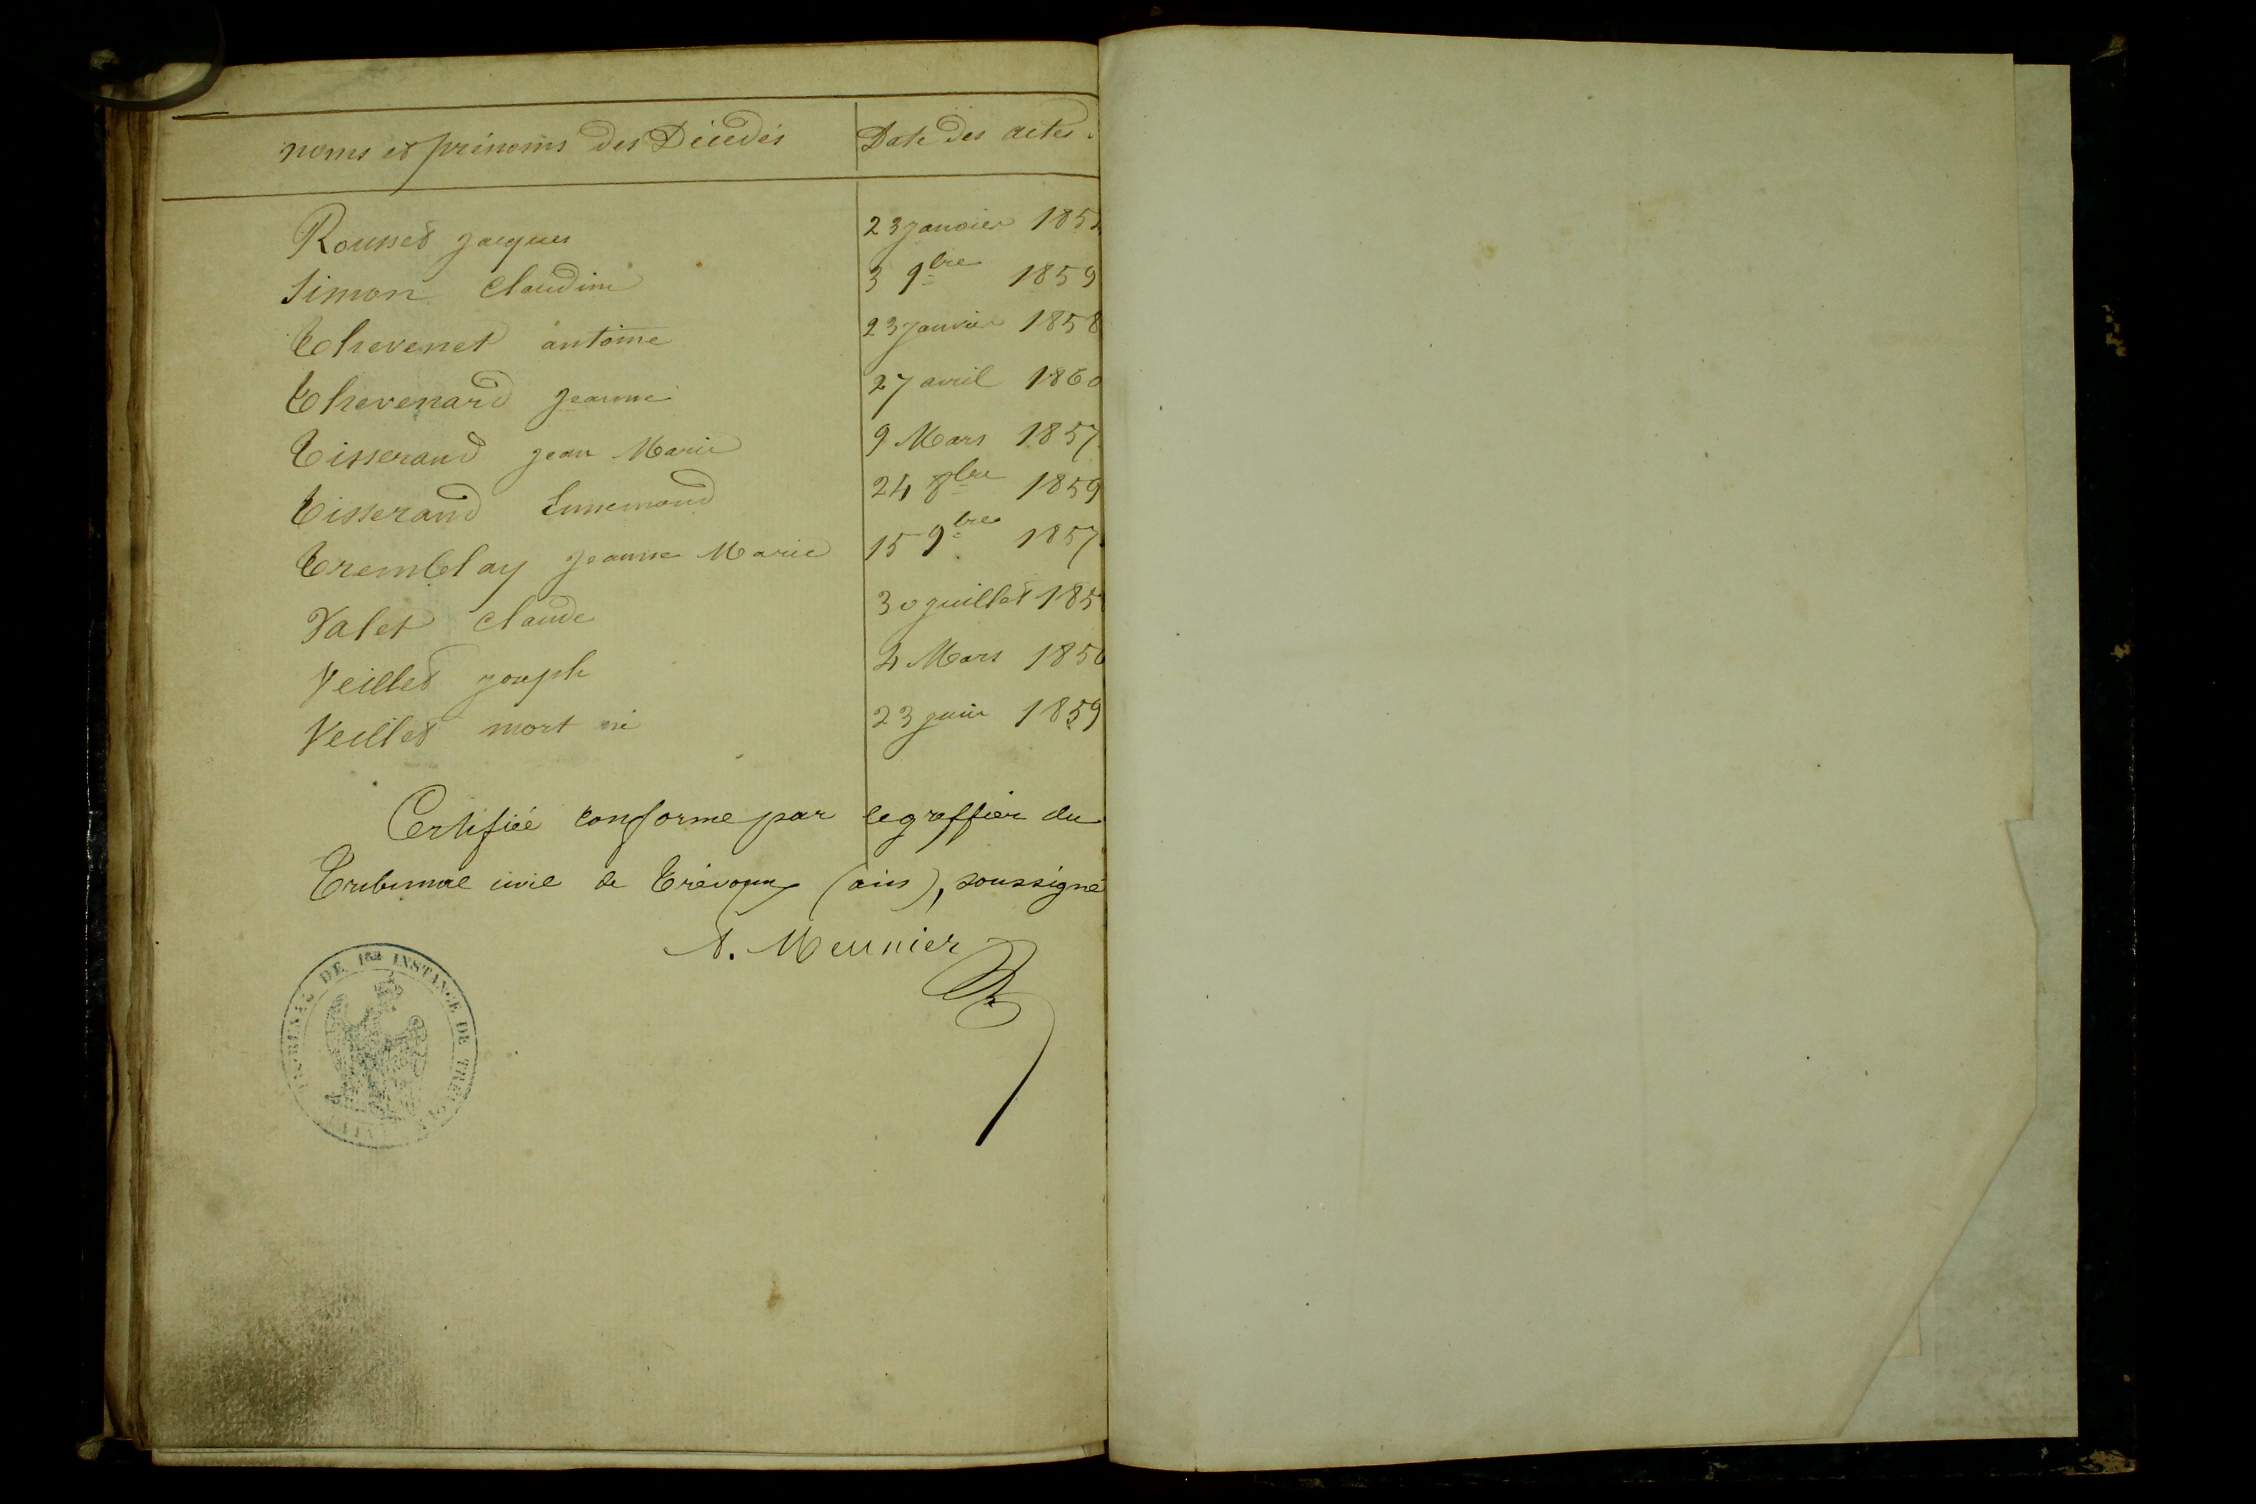 noms et prénoms des Décédés Date des actes.
Rousset jacques 23 janvier
Simon Claudine 3 9bre 1859
Thevenet antoine 23 janvier 1858
Thevenard jeanne 27 avril 1860
Tisserand jean Marie 9 Mars 1857
Tisserand Ennemond 24 8bre 1859
Tremblay jeanne Marie 15 9bre 1857
Valet Claude 30 juillet 185
Veillet joseph 4 Mars
Veillet mort né 23 juin 1859
Certifiée conforme par le greffier du
Tribunal civil de Trévoux (ain), soussigné
Meunier
TRIBUNAL DE 1re INSTANCE DE TREVOUX